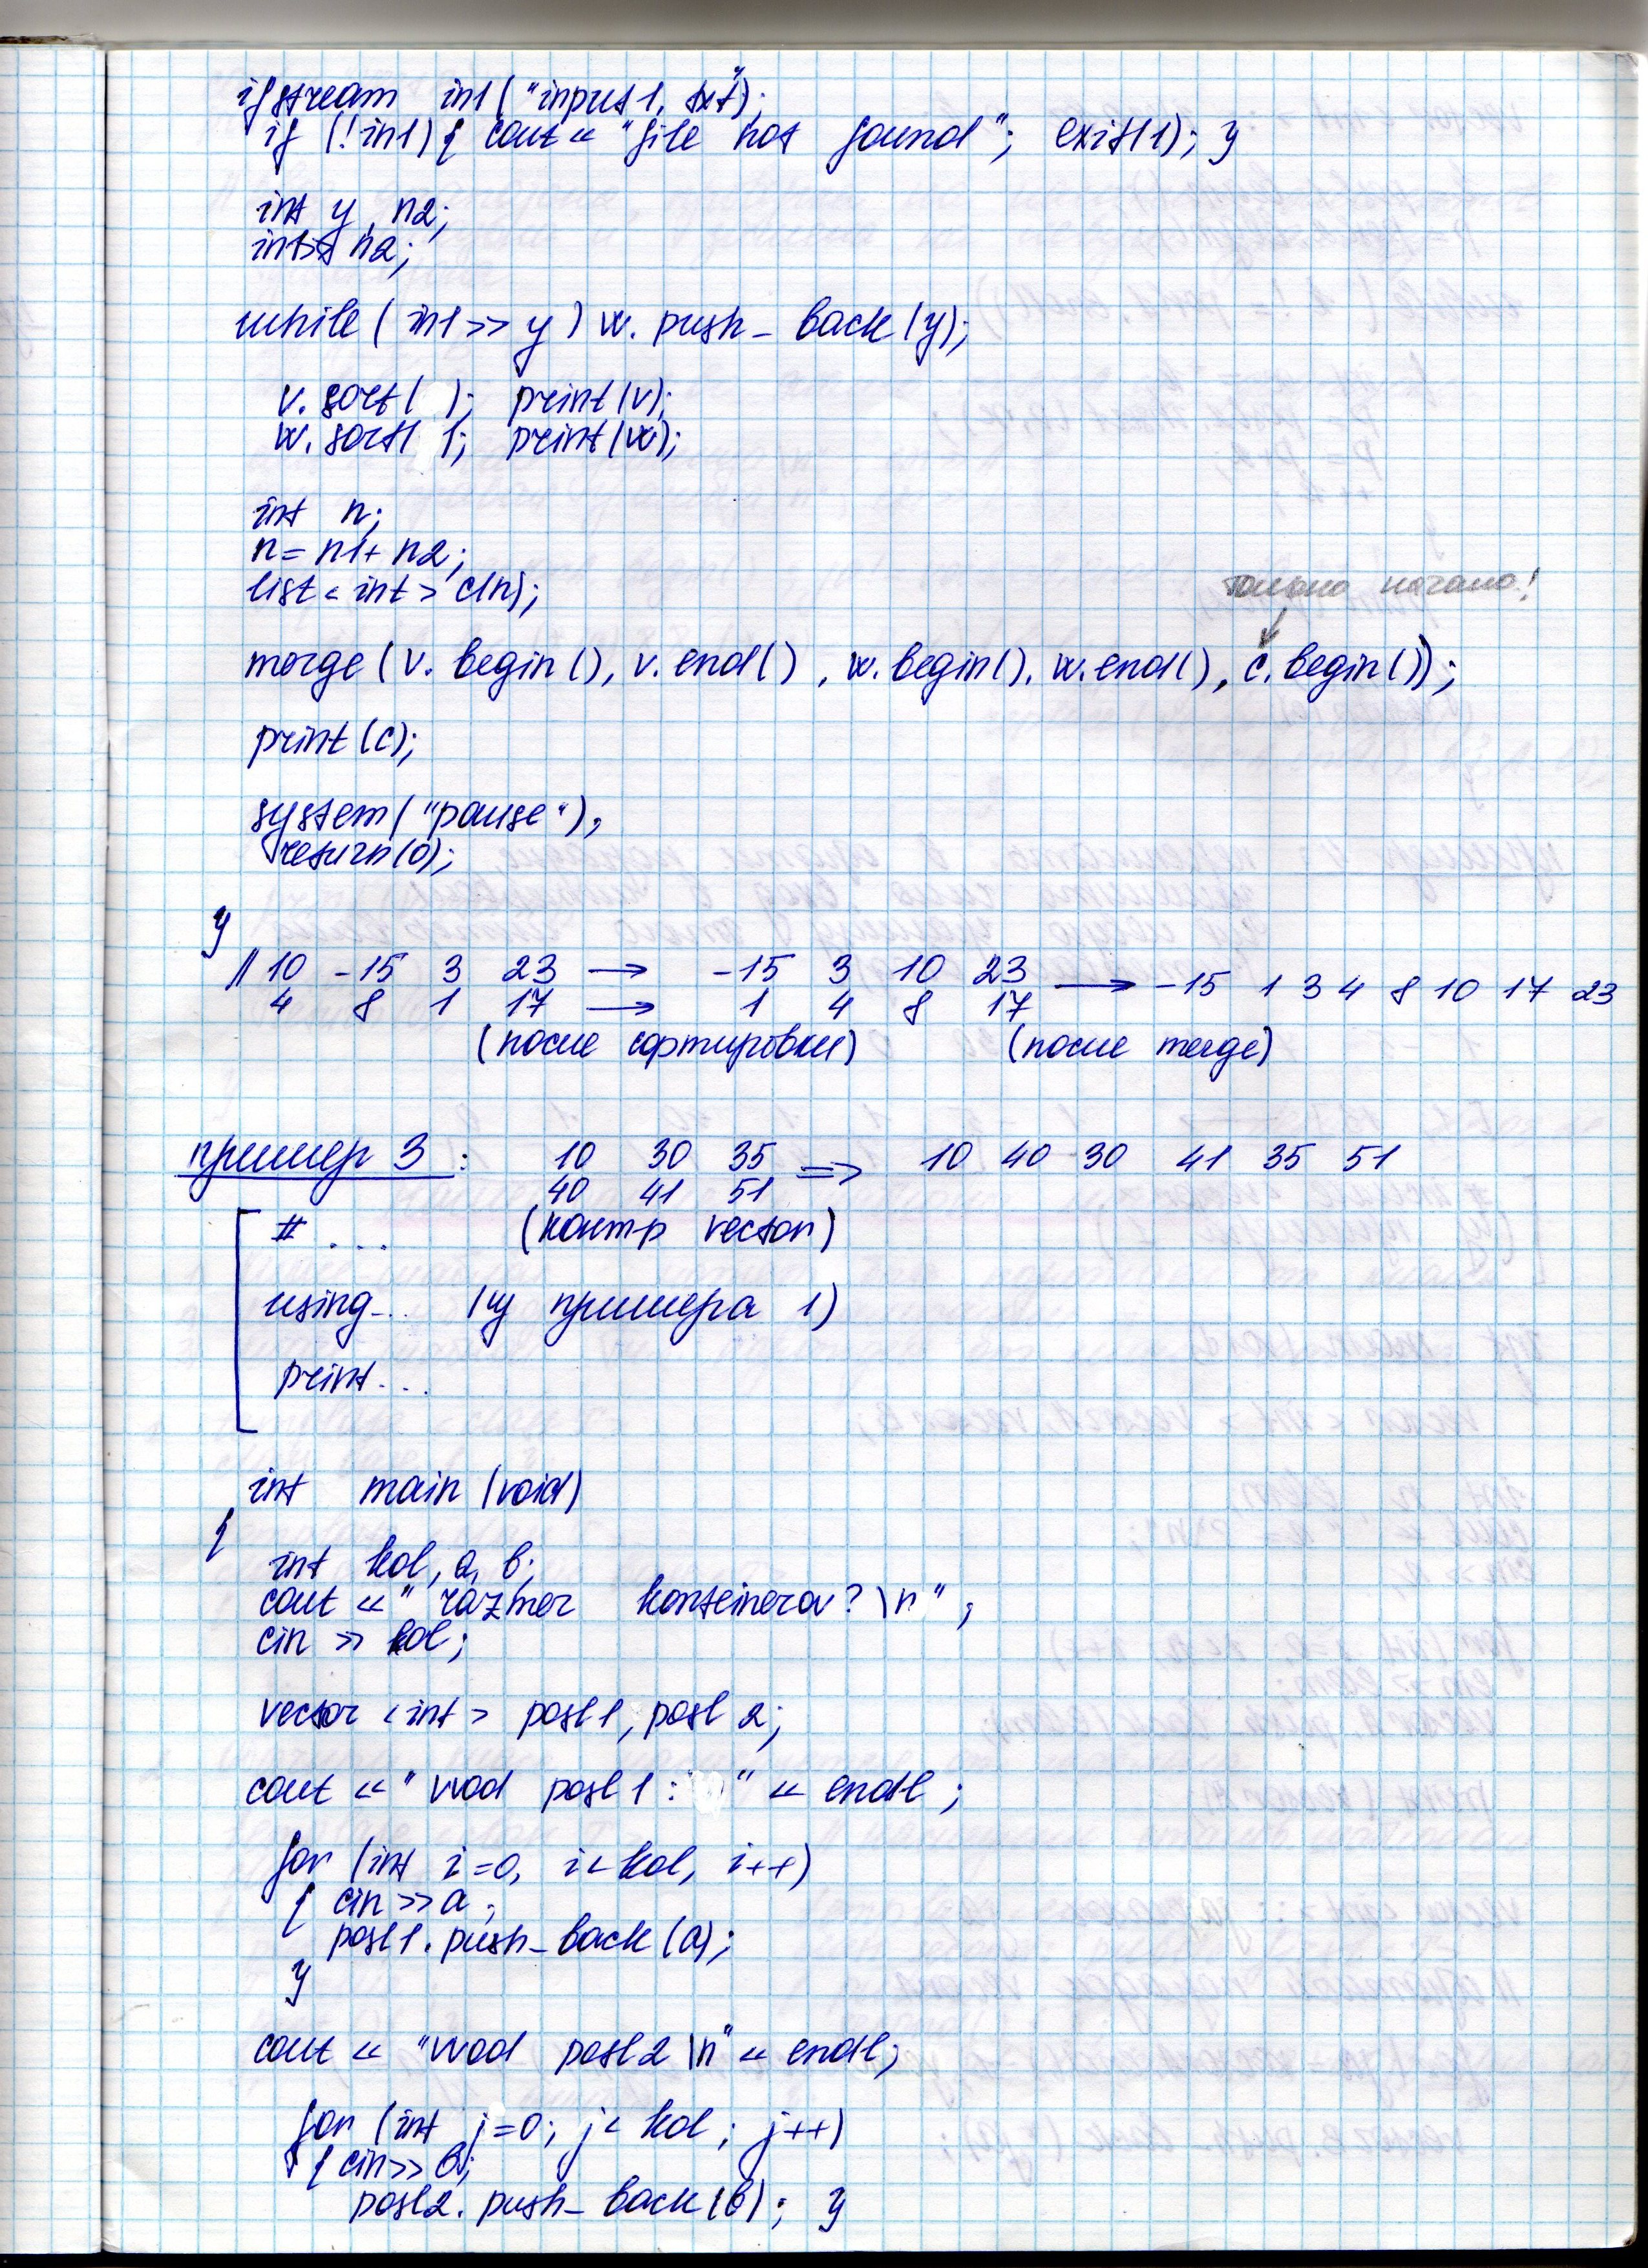 ifstream in1("input1.txt");
if (!in1) { cout << "file not found"; exit(1); }
int y, n2;
in1>> n2;
while (in1 >> y) w.push_back(y);
v.sort( ); print(v);
w.sort( ); print(w);
int n;
n = n1 + n2;
list < int > c(n);
только начало!
merge (v.begin(), v.end(), w.begin(), w.end(), c.begin());
print(c);
system("pause");
return(0);
}
// 10 -15 3 23 → -15 3 10 23 → -15 1 3 4 8 10 17 23
4 8 1 17 → 1 4 8 17
(после сортировки) (после merge)
пример 3: 10 30 35 => 10 40 30 41 35 51
40 41 51
# ... (контр vector)
using... (из примера 1)
print...
int main (void)
{
int kol, a, b;
cout << "razmer konteinerov? \n";
cin >> kol;
vector <int> posl1, posl2;
cout << "vvod posl1: " << endl;
for (int i=0, i<kol, i++)
{ cin >> a;
posl1.push_back(a);
}
cout << "vvod posl2 \n" << endl;
for (int j=0; j< kol; j++)
{ cin>> b;
posl2.push_back(b); }